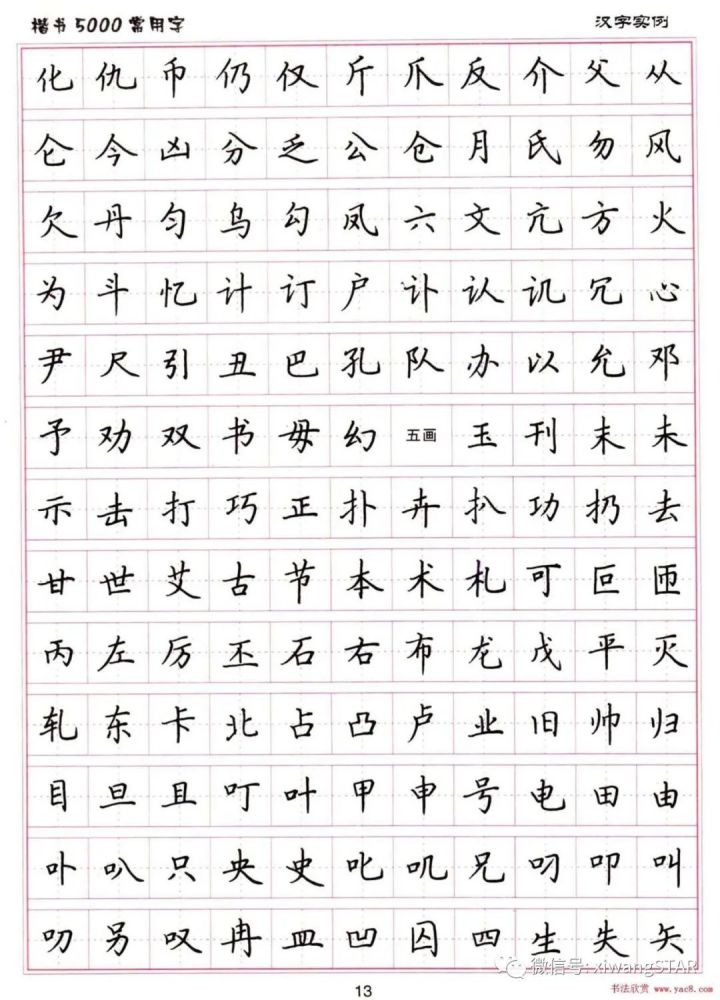 楷书5000常用字 汉字实例
化仇币仍仅斤爪反介父从
仑今凶分乏公仓月氏勿风
欠丹匀乌勾凤六文亢方火
为斗忆计订户讣认讥冗心
尹尺引丑巴孔队办以允邓
予劝双书毋幻五画玉刊末未
示击打巧正扑卉扒功扔去
甘世艾古节本术札可叵匝
丙左厉丕石右布龙戊平灭
轧东卡北占凸卢业旧帅归
目旦且叮叶甲申号电田由
卟叭只央史叱叽兄叼叩叫
叻另叹冉皿凹囚四生失矢
微信号: xiwangSTAR
13
书法欣赏 www.yac8.com